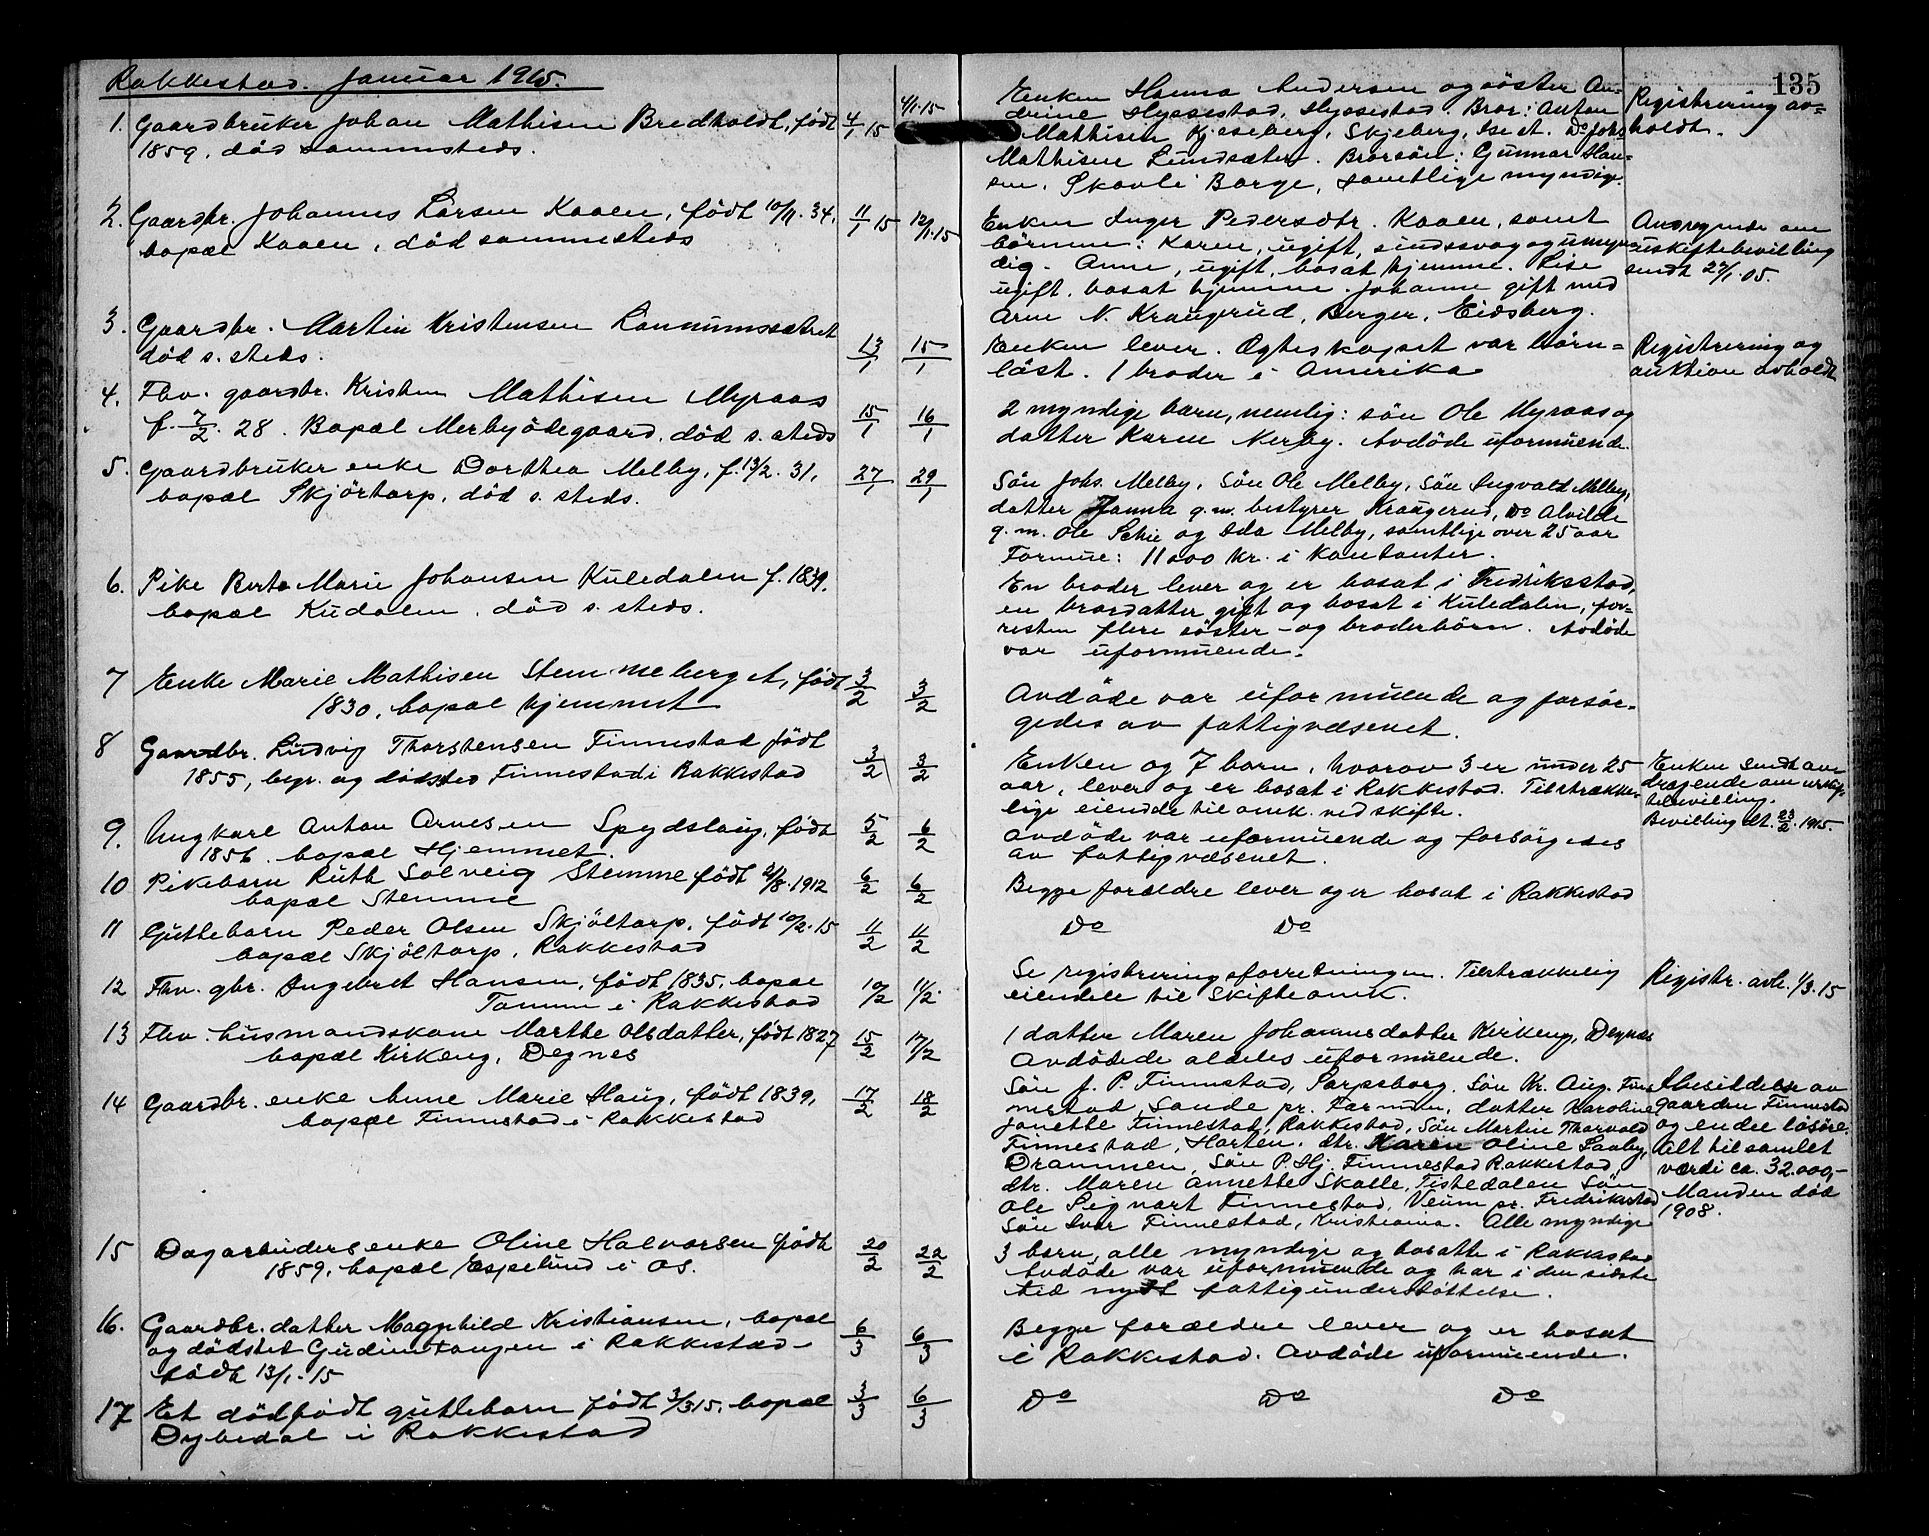 135
Rakkestad. Januar 1915.
1. Gaardbruker Johan Mathisen Bredholdt, født 4/1 15 4/1.15
1859, død sammesteds.
Enken Hanna Andersen og søster An-
drine Hyssestad, Hyssestad. Bror: Anton
Mathisen Kjeseberg, Skjeberg, Ise st. Do Johs
Mathisen Lundsæter. Brorsøn: Gunnar Han-
sen. Skovli Borge, samtlige myndig.
Registrering av-
holdt.
2. Gaardbr. Johannes Larsen Kaaen, født 10/11. 34. 11/1 15 12/1.15
bopæl Kaaen, død sammesteds
Enken Inger Pedersdtr. Kaaen, samt
børnene: Karen, ugift, sindssvag og umyn-
dig. Anne, ugift, bosat hjemme. Lise
ugift, bosat hjemme. Johanne gift med
Arne N. Kraugerud, Berger, Eidsberg.
Andragende om
uskiftebevilling
sendt 27/1.05.
3. Gaardbr. Martin Kristensen Lannumssætret
død s. steds. 13/1 15/1
Enken lever. Egteskapet var børn-
løst. 1 broder i Amerika
Registrering og
auktion avholdt
4. Fhv. gaardbr. Kristen Mathisen Myraas
f. 7/2. 28. Bopæl Merbyødegaard, død s. steds 15/1 16/1
2 myndige barn, nemlig: søn Ole Myraas og
datter Karen Nerby. Avdøde uformuende.
5. Gaardbruker enke Dorthea Melby, f. 13/2. 31, 27/1 29/1
bopæl Skjørtorp, død s. steds.
Søn Johs. Melby, Søn Ole Melby, Søn Ingvald Melby,
datter Hanna g.m. bestyrer Kraugerud, Do Alvilde
g.m. Ole Schie og Ida Melby, samtlige over 25 aar
Formue: 11000 kr. i kontanter.
6. Pike Berte Marie Johansen Kuledalen f. 1839.
bopæl Kudalen, død s. steds.
En broder lever og er bosat i Fredriksstad,
en brordatter gift og bosat i Kuledalen, for-
resten flere søster- og broderbørn. Avdøde
var uformuende.
7 Enke Marie Mathisen Stemmeberget, født 3/2 3/2
1830, bopæl hjemmet
Avdøde var uformuende og forsør-
gedes av fattigvæsenet.
8 Gaardbr. Ludvig Thorstensen Finnestad født
1855, begr. og dødsted Finnestad i Rakkestad 3/2 3/2
Enken og 7 barn, hvorav 3 er under 25
aar, lever og er bosat i Rakkestad. Tilstrække-
lige eiendele til omk. ved skifte.
Enken sendt an-
dragende om uskif-
tebevilling.
Bevilling dt. 23/2. 1915.
9. Ungkarl Anton Arnesen Spydslaug, født 5/2 6/2
1856. bopæl Hjemmet.
Avdøde var uformuende og forsørgedes
av fattigvæsenet.
10 Pikebarn Ruth Solveig Stemme født 2/8.1912 6/2 6/2
bopæl Stemme
Begge forældre lever og er bosat i Rakkestad
11 Guttebarn Peder Olsen Skjøltorp, født 10/2. 15 11/2 11/2
bopæl Skjøltorp, Rakkestad
Do Do
12 Fhv. gbr. Ingebret Hansen, født 1835, bopæl 10/2 11/2.
Tamum i Rakkestad
Se registreringsforretningen. Tilstrækkelig
eiendele til skifteomk.
Registr. avh. 1/3.15
13 Fhv. husmandskone Marthe Olsdatter, født 1827 15/2 17/2
bopæl Kirkeng, Degnes
1 datter Maren Johannesdatter Kirkeng, Degnes
Avdødede aldeles uformuende.
14 Gaardbr. enke Anne Marie Haug, født 1839, 17/2 18/2
bopæl Finnestad i Rakkestad
Søn J. P. Finnestad, Sarpsborg. Søn Kr. Aug. Finn-
nestad, Sande pr. datter Karoline
Jonette Finnestad, Rakkestad, Søn Martin Thorvald
Finnestad, Horten, dtr. Karen Oline Saaby,
Drammen, Søn P. Hj. Finnestad Rakkestad,
dtr. Maren Annette Skolle, Tistedalen Søn
Ole Sigvart Finnestad, Veum pr. Fredrikstad
Søn Ivar Finnestad, Kristiania. Alle myndige
Ibesiddelse av
gaarden Finnestad
og endel løsøre.
Alt til samlet
værdi ca. 32.000,-
Manden død
1908.
15 Dagarbeiders enke Oline Halvorsen født 20/2 22/2
1859, bopæl Espelund i Os.
3 barn, alle myndige og bosatte i Rakkestad
Avdøde var uformuende og har i den sidste
tid nydt fattigunderstøttelse.
16. Gaardbr. datter Magnhild Kristiansen, bopæl
og dødsted Gudimtangen i Rakkestad- 6/3 6/3
født 13/1.15
Begge forældre lever og er bosat
i Rakkestad. Avdøde uformuende.
17 Et dødfødt guttebarn født 3/3 15, bopæl 3/3 6/3
Dybedal i Rakkestad
Do Do Do